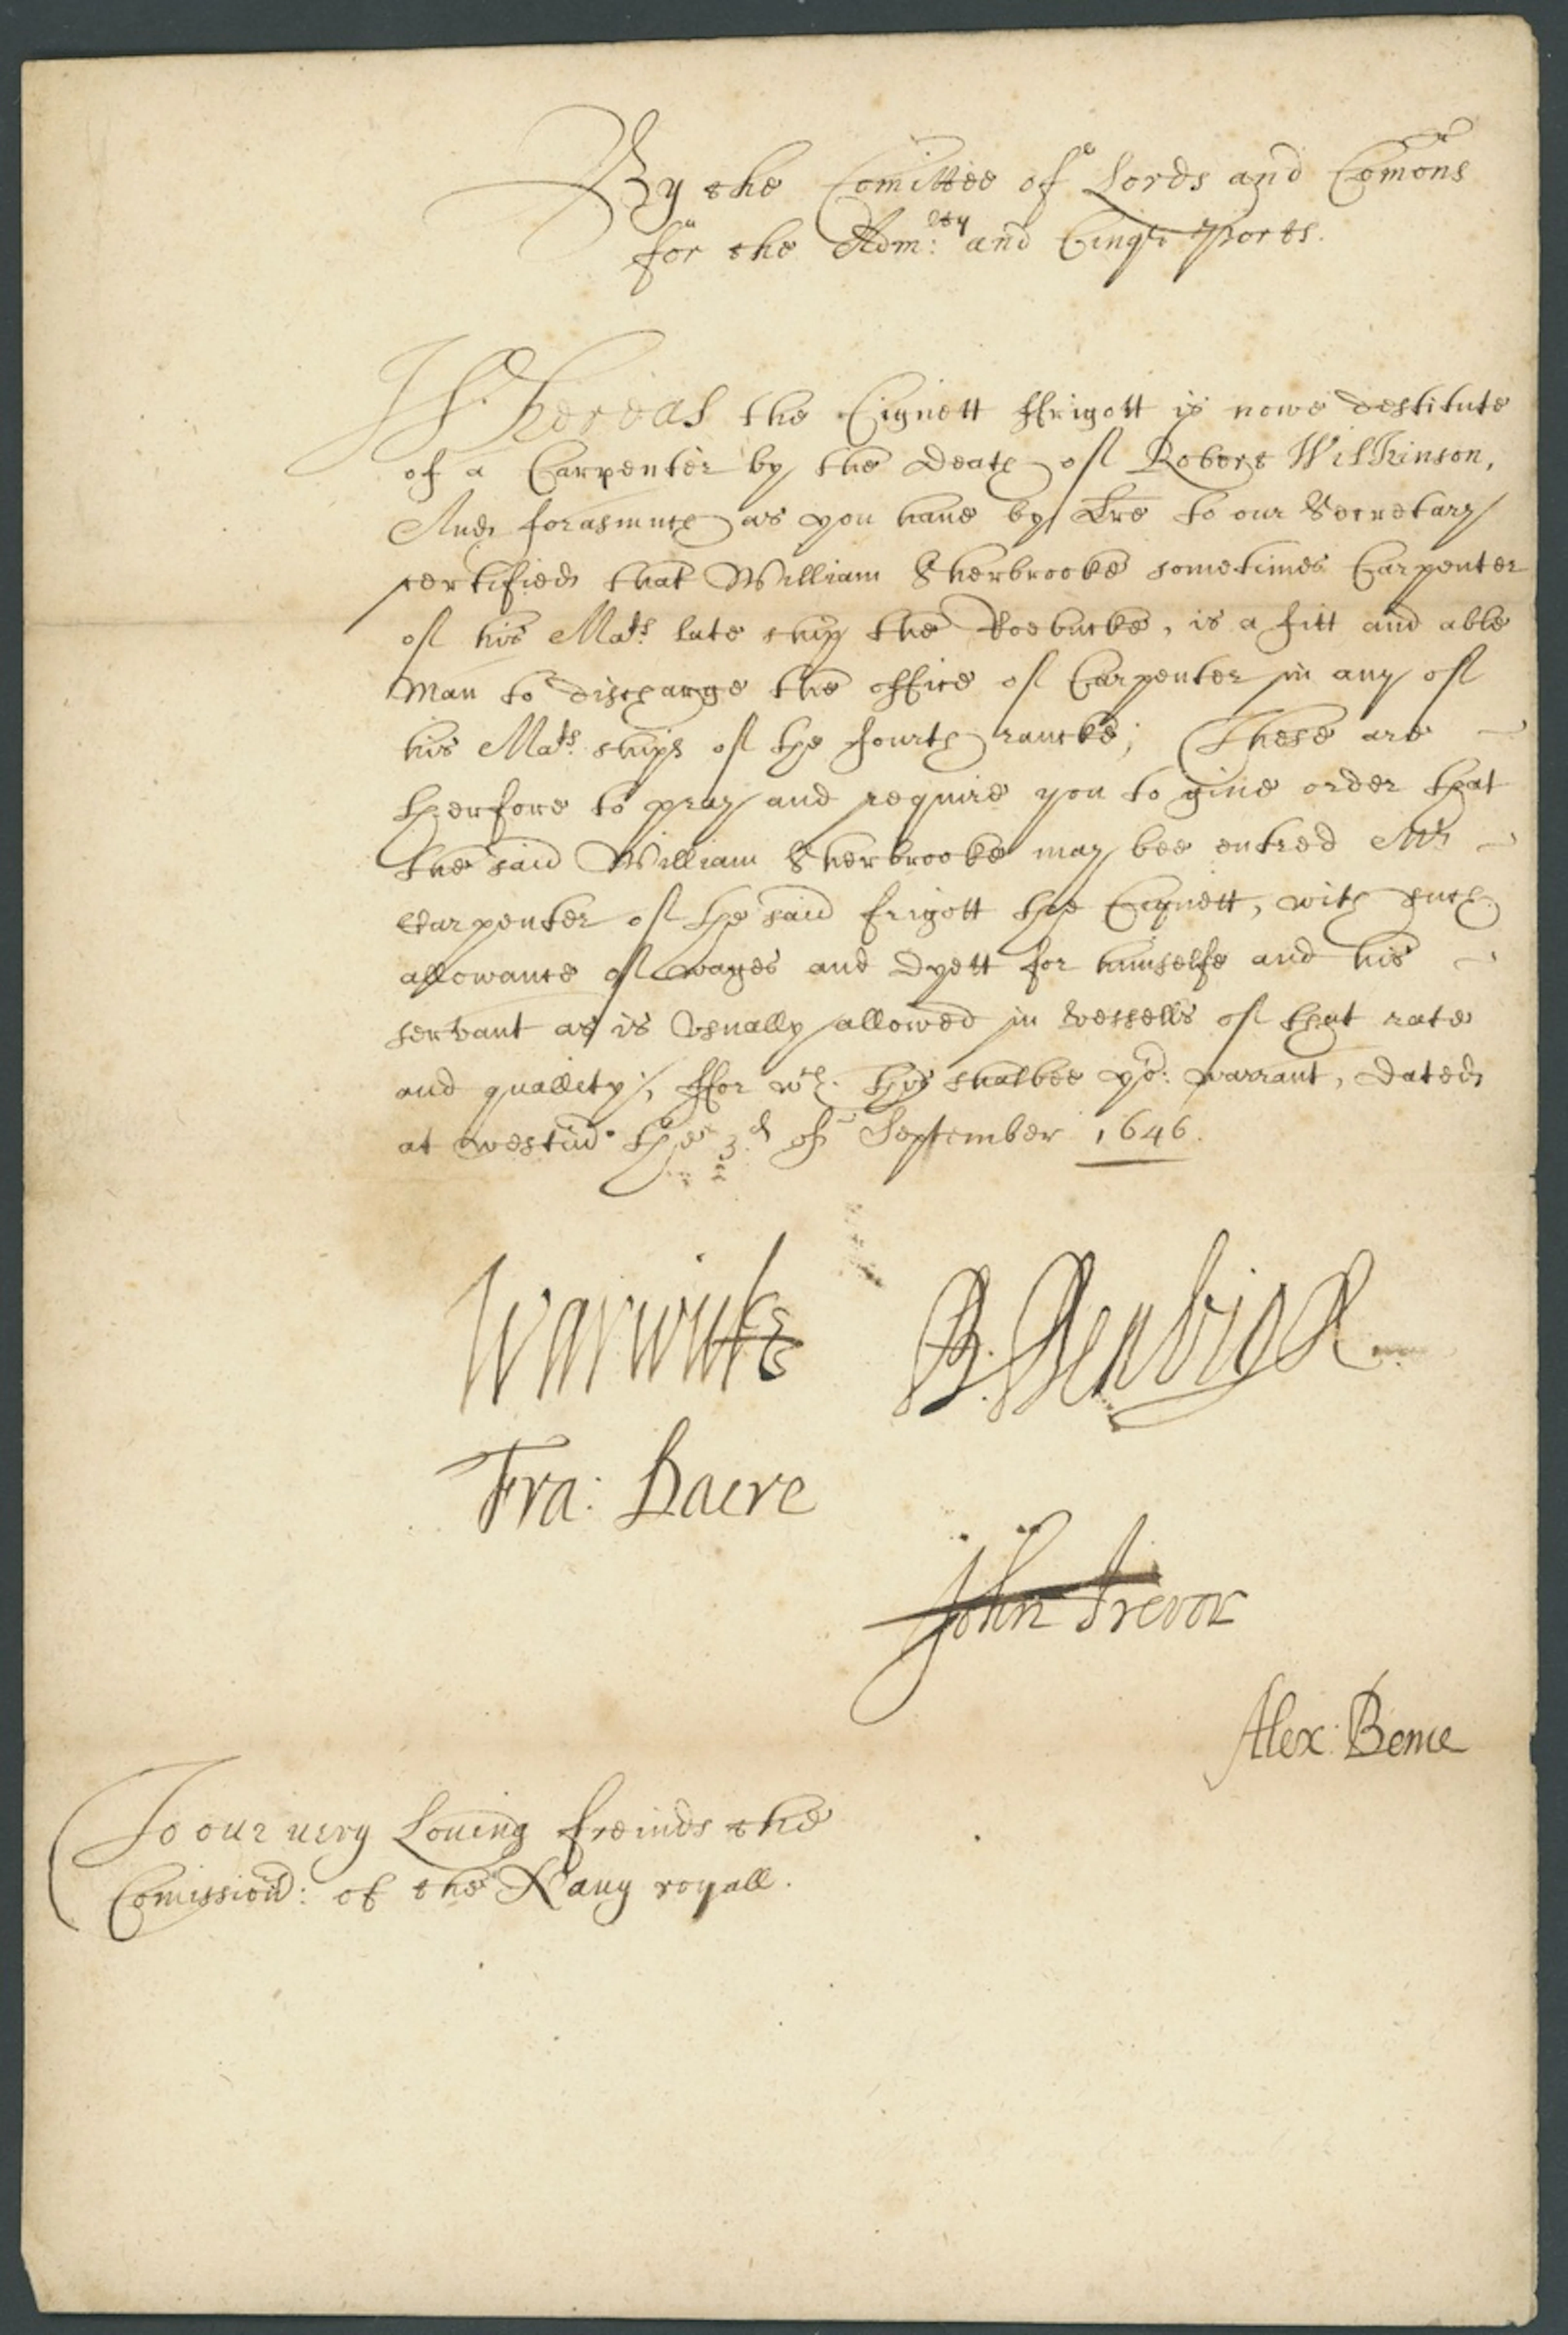 By the Comittee of Lords and Comons
for the Adm:lty and Cinq Ports.
Whereas the Cignett ffrigott is nowe destitute
of a Carpenter by the death of Robert Wilkinson,
And forasmuch as you haue by Lre to our Secretary
certified that William Sherbrooke sometimes Carpenter
of his Mats late ship the Roebucke, is a fitt and able
man to discharge the office of Carpenter in any of
his Mats ships of the fourth rancke; These are
therfore to pray and require you to giue order that
the said William Sherbrooke may bee entred Mr
Carpenter of the said frigott the Cignett, with such
allowance of wages and dyett for himselfe and his
servant as is vsually allowed in vessells of that rate
and quallity; ffor wch. this shalbee yor: warrant, dated
at westmr the 3d of September 1646.
Warwicke
B. Denbigh
Fra: Dacre
John Trevor
Alex: Bence
To our uery Loueing freinds the
Comissiors: of the Nauy royall.